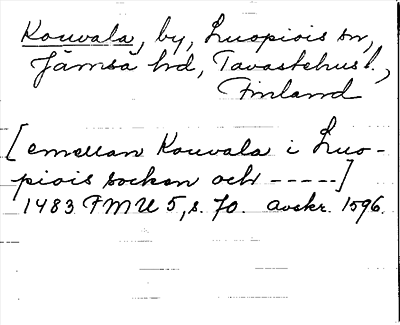 Kouvala, by, Luopiois sn,
Jämsä hd, Tavastehus l.,
Finland
[emellan Kouvala i Luo-
piois socken och -----]
1483 FMU 5, s. 70. avskr. 1596.